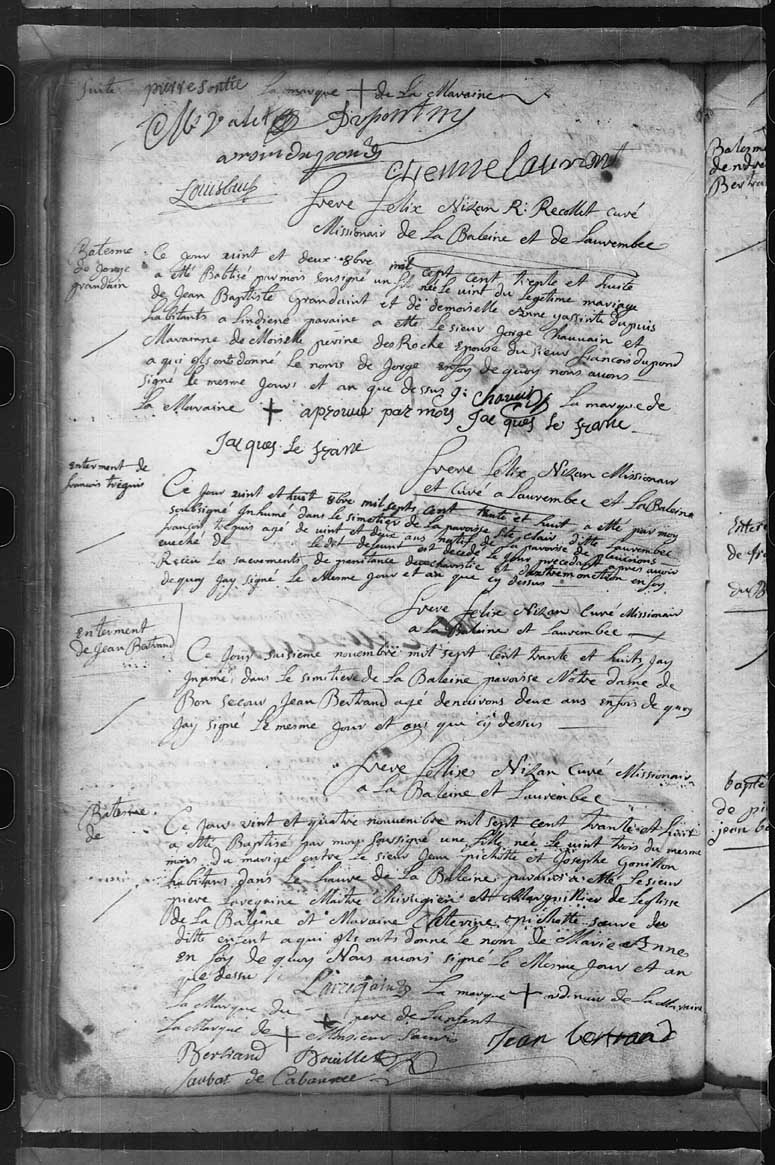 Suite pierre sontie La marque + de La Maraine
Mr Valet Dupontin
arondupond
etienne laurent
Louis buf
frere felix Nizan R: Recollet Curé
Missionair de La Baleine et de Laurembec
Bateme de Jorge grandain
Ce Jour vint et deux 8bre mil sept cent trente et huite
a etté Baptisé par mois sousigné un fils née le vint du Legétime mariage
de Jean Baptiste Granduint et de demoiselle Anne yassinte dupuis
habitants a Lindiene paraine a ette Le sieur Jorge Chauuin et
Maraine de Moiselle perine des Roche Epouse du sieur francois dupond
a qui ils ont donné Le noms de Jorge enfoy de quoy nous auons
signé le mesme Jours et an que dessus J: Chauuin La marque de
La Maraine + aprouue par mois Jacques Le franc
Jacques Le franc
frere felix Nizan Missionair
et Curé a Laurembec et La Baleine
enterment de francois treguis
Ce Jour vint et huit 8bre mil septs cent trente et huit a etté par moy
soussigné Inhumé dans le simetier de La paroise Ste clair ditte Laurembec
francois treguis agé de vint et deux ans natif de La paroise de
eueché de le dit defunt est decedé le Jour precedant apres auoir
Recêu Les sacrements de penitance deucharistie et dextremonction en foy
de quoy Jay signé Le Mesme Jour et an que cy dessus
frere felix Nizan Curé Missionair
a La Baleine et Laurembec
enterment de Jean Bertrand
Ce Jour saisieme nouembre mil sept Cent trante et huit Jay
Inhumé dans Le simitiere de La Baleine paroisse Notre dame de
Bon secour Jean Bertrand agé denuirons deux ans enfois de quoy
Jay signé Le mesme Jour et ans que cy dessus
frere felix Nizan Curé Missionair
a La Baleine et Laurembec
Bateme de
Ce Jour vint et quatre nouuembre mil sept cent trante et huit
a etté Baptisé par moy soussigné une fille née Le vint trois du mesme
mois du mariage entre Le sieur Jean pichotte et Josephe Gonillon
habitans dans Le haure de La Baleine paraine a etté Le sieur
pierre Larreguine Maitre Chirugien et Marguillier de Leglisse
de La Baleine et Maraine Caterine pichotte sœure du
ditte enfent a qui ils onts donné Le nom de Marie Anne
en foy de quoy Nous auons signé Le Mesme Jour et an
que dessu Larreguine La marque + ordinair de La Maraine
La Marque du + pere de Lenfent
La Marque de + Monsieur Jean bertrand
Bertrand Douillet
saubat de Cabannec
Bateme
de ndre
Bertra
Enter
de fra
bapte
de pi
jean be